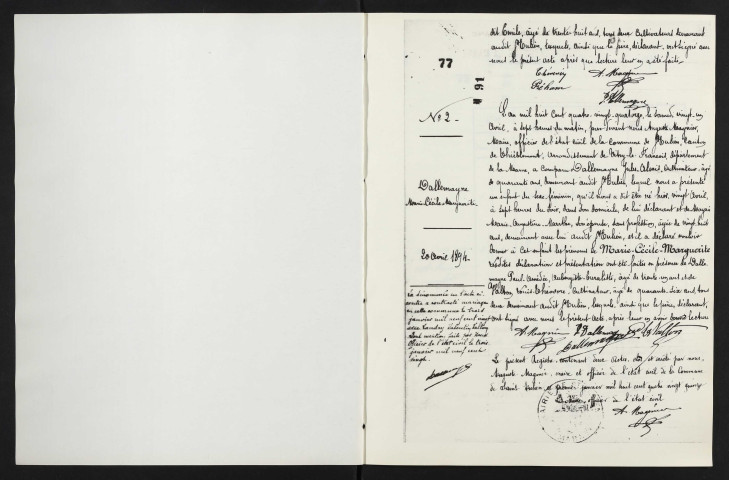 dit Emile, âgé de trente huit ans, tous deux Cultivateurs demeurant
audit St Lulien, lesquels, ainsi que le père, déclarant, ont signé avec
nous le présent acte après que lecture leur en a été faite.
77
A. Maquin
P. Dallemagne
191
L'an mil huit cent quatre-vingt-quatorze, le samedi vingt-un
Avril, à sept heures du matin, par devant nous Auguste
Maire, officier de l'état civil de la Commune de St Lulien, Canton
de Thiéblemont, arrondissement de Vitry-le-François, département
de la Marne, a comparu Dallemagne Jules Alexis, Cultivateur, âgé
de quarante ans, demeurant audit St Lulien, lequel nous a présenté
un enfant du sexe féminin, qu'il nous a dit être né hier, vingt Avril,
à sept heures du soir, dans son domicile, de lui déclarant et de
Marie Augustine Marthe, son épouse, sans profession, âgée de vingt huit
ans, demeurant avec lui audit St Lulien, et il a déclaré vouloir
donner à cet enfant les prénoms de Marie-Cécile-Marguerite
lesdites déclaration et présentation ont été faites en présence de Dalle-
magne Paul Amédée, Aubergiste-buraliste, âgé de trente un ans et de
Louis Théodore, Cultivateur, âgé de quarante six ans, tous
deux demeurant audit St Lulien, lesquels, ainsi que le père, déclarant,
ont signé avec nous le présent acte, après leur en avoir donné lecture
No 2.
Dallemagne
Marie Cécile Marguerite
20 Avril 1894.
La dénommée en l'acte ci-
contre a contracté mariage
en cette commune le trois
janvier mil neuf cent vingt
avec
Dont mention faite par nous
officier de l'état civil le trois
janvier mil neuf cent
vingt.
A. Maquin P. Dallemagne
Dallemagne
Le présent Registre contenant deux actes, clos et arrêté par nous,
Auguste Maquin, maire et officier de l'état civil de la Commune
de Saint Lulien, le premier janvier mil huit cent quatre vingt quinze
Le Maire, officier de l'état civil
A. Maquin